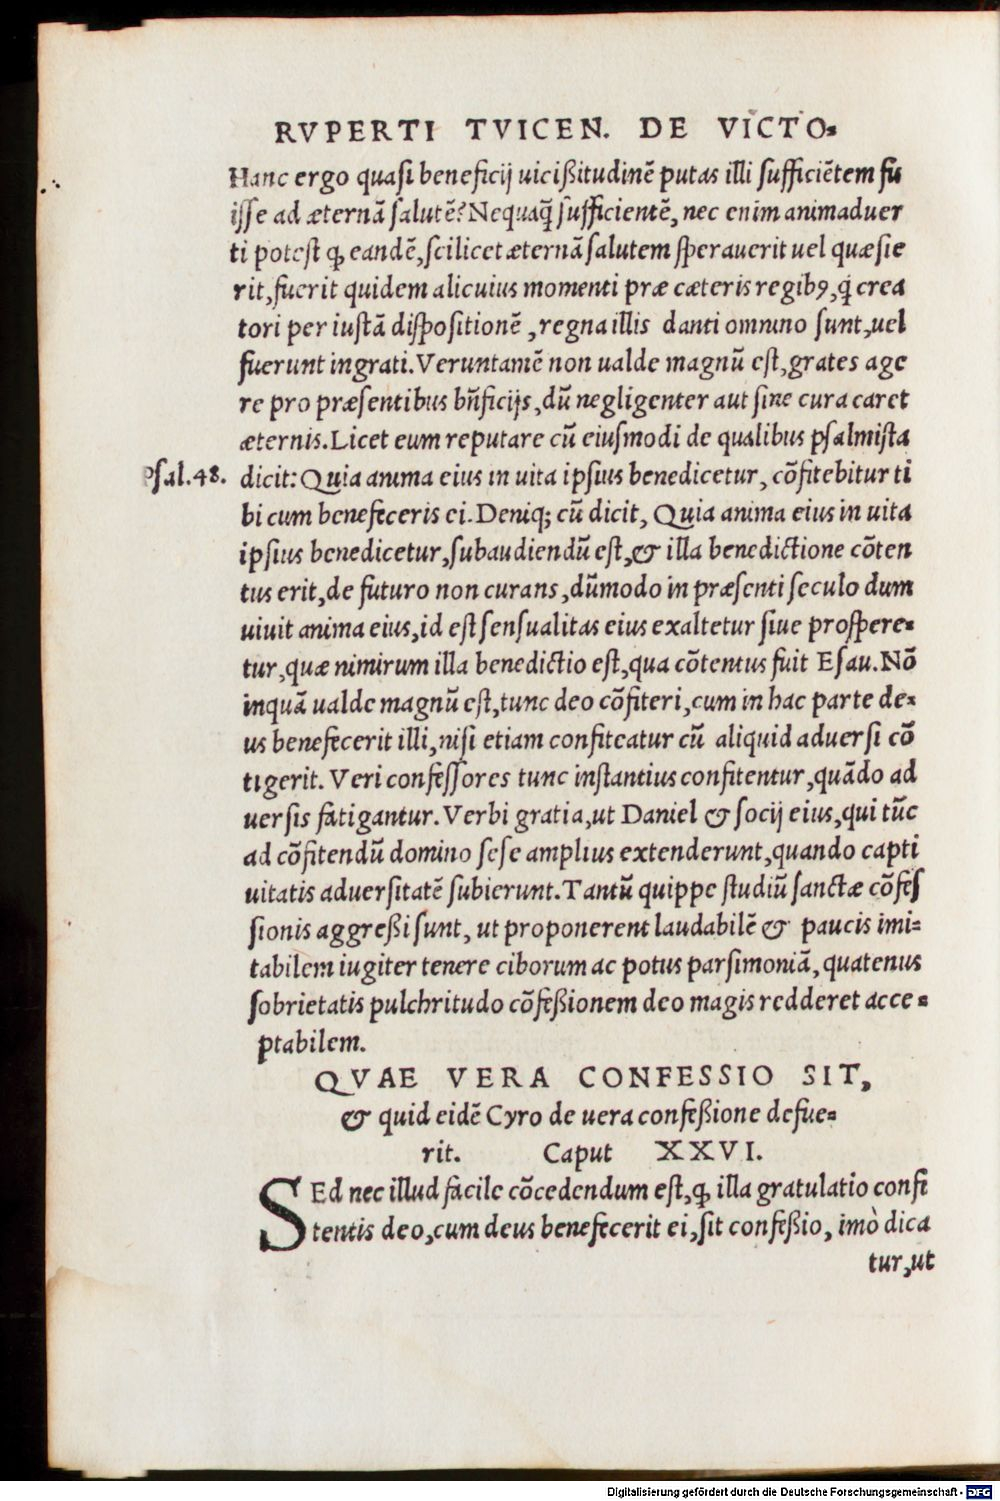 RVPERTI TVICEN. DE VICTO-
Hanc ergo quasi beneficij uicißitudinē putas illi sufficiētem fu
isse ad æternā salutē? Nequaq̄ sufficientē, nec enim animaduer
ti potest ꝙ eandē, scilicet æternā salutem sperauerit uel quæsie
rit, fuerit quidem alicuius momenti præ cæteris regibꝰ, q̇ crea
tori per iustā dispositionē, regna illis danti omnino sunt, uel
fuerunt ingrati. Veruntamē non ualde magnū est, grates age
re pro præsentibus bn̄ficijs, dū negligenter aut sine cura caret
æternis. Licet eum reputare cū eiusmodi de qualibus psalmista
Psal.48. dicit: Quia anima eius in uita ipsius benedicetur, cōfitebitur ti
bi cum benefeceris ei. Deniq; cū dicit, Quia anima eius in uita
ipsius benedicetur, subaudiendū est, & illa benedictione cōten
tus erit, de futuro non curans, dūmodo in præsenti seculo dum
uiuit anima eius, id est sensualitas eius exaltetur siue prospere-
tur, quæ nimirum illa benedictio est, qua cōtentus fuit Esau. Nō
inquā ualde magnū est, tunc deo cōfiteri, cum in hac parte de-
us benefecerit illi, nisi etiam confiteatur cū aliquid aduersi cō
tigerit. Veri confessores tunc instantius confitentur, quādo ad
uersis fatigantur. Verbi gratia, ut Daniel & socij eius, qui tūc
ad cōfitendū domino sese amplius extenderunt, quando capti
uitatis aduersitatē subierunt. Tantū quippe studiū sanctæ cōfes
sionis aggreßi sunt, ut proponerent laudabilē & paucis imi-
tabilem iugiter tenere ciborum ac potus parsimoniā, quatenus
sobrietatis pulchritudo cōfeßionem deo magis redderet acce-
ptabilem.
QVAE VERA CONFESSIO SIT,
& quid eidē Cyro de uera confeßione defue-
rit. Caput XXVI.
SEd nec illud facile cōcedendum est, ꝙ illa gratulatio confi
tentis deo, cum deus benefecerit ei, sit confeßio, imò dica
tur, ut
Digitalisierung gefördert durch die Deutsche Forschungsgemeinschaft - DFG